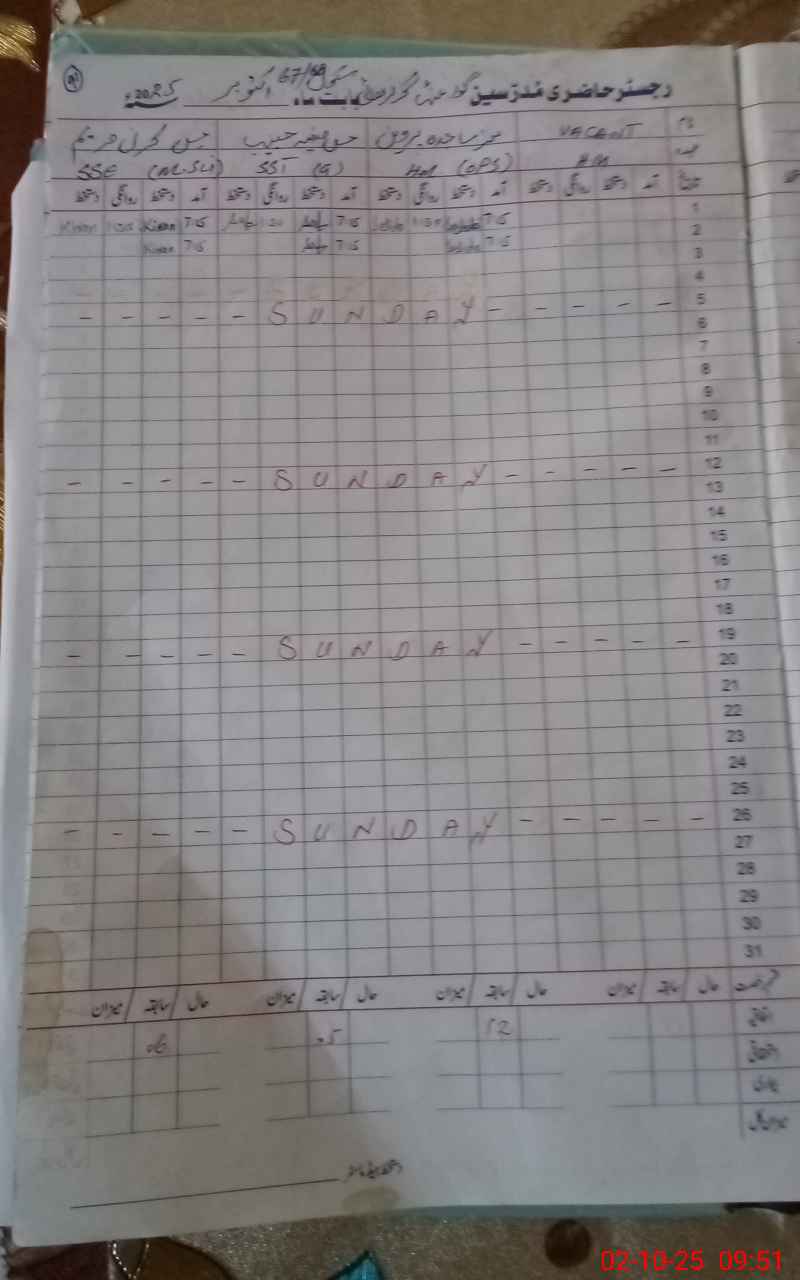 رجسٹر حاضری مدرسین سکول 67/ بابت ماہ اکتوبر 2025ء
نام VACANT مسز ساجدہ پروین مس حبیب مس کرن مریم
عہدہ HM HM (OPS) SST (G) SSE (M.Sci)
تاریخ آمد دستخط روانگی دستخط آمد دستخط روانگی دستخط آمد دستخط روانگی دستخط آمد دستخط روانگی دستخط
1 7:15 7:15 7:15 Kiran Kiran
2 7:15 7:15 7:15 Kiran
3
4
5 - - - - - S U N D A Y - - - - -
6
7
8
9
10
11
12 - - - - - S U N D A Y - - - - -
13
14
15
16
17
18
19 - - - - - S U N D A Y - - - - -
20
21
22
23
24
25
26 - - - - - S U N D A Y - - - - -
27
28
29
30
31
حال سابقہ میزان حال سابقہ میزان حال سابقہ میزان حال سابقہ میزان
اتفاقی 12 05 06
استحقاقی
بیماری
میزان کل
دستخط ہیڈ ماسٹر
02-10-25 09:51